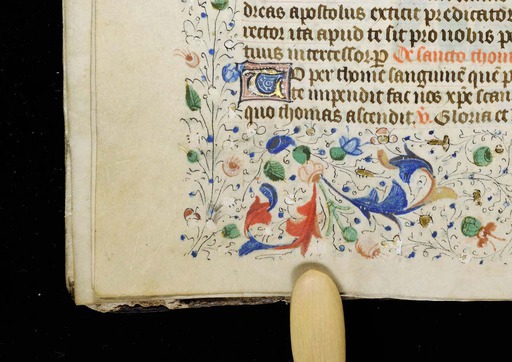 dreas apostolus extitit predicator
rector ita apud te sit pro nobis pe
tuus intercessor. p De sancto thom
Tu per thome sanguinē quē p
te impendit fac nos xpē scan
quo thomas ascendit. V. Gloria et